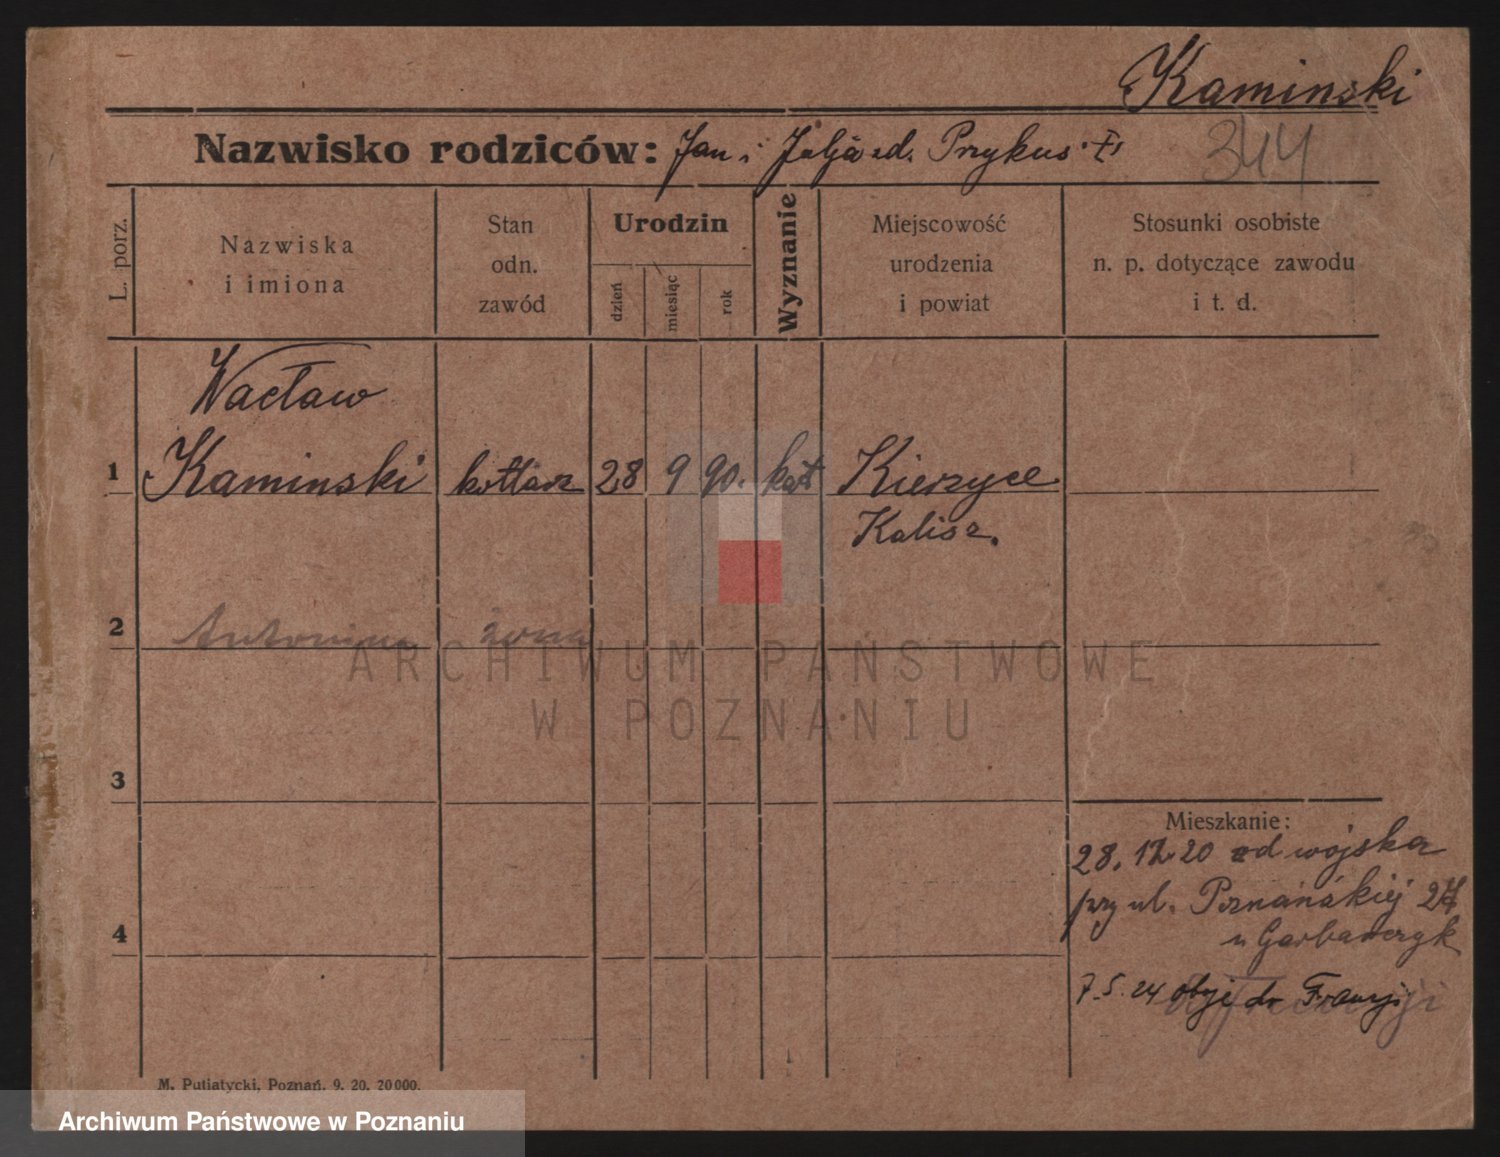 Kaminski
Nazwisko rodziców: Jan i Julja zd. Przykus
344
L. porz.
Nazwiska
i imiona
Stan
odn.
zawód
Urodzin
dzień
miesiąc
rok
Wyznanie
Miejscowość
urodzenia
i powiat
Stosunki osobiste
n. p. dotyczące zawodu
i t. d.
Wacław
1 Kaminski kotlarz 28 9 90. kat Kierzyce
Kalisz.
2 Antonina żona
ARCHIWUM PAŃSTWOWE
W POZNANIU
3
Mieszkanie:
28. 12. 20 od wojska
przy ul. Poznańskiej
u Garbarczyk
4
7.5.24 do Francji
M. Putiatycki, Poznań. 9. 20. 20000.
Archiwum Państwowe w Poznaniu